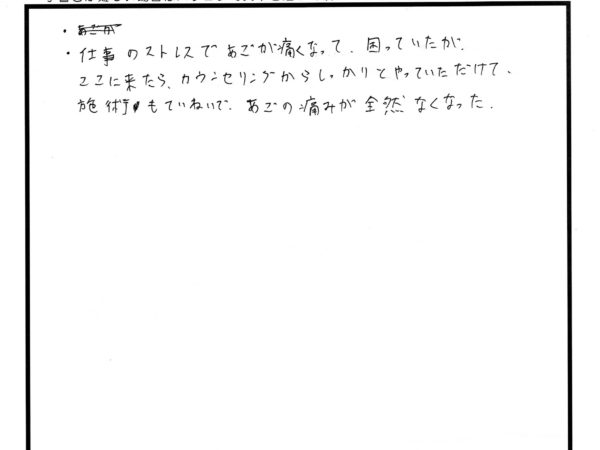 ・あごが
・仕事のストレスであごが痛くなって、困っていたが、
ここに来たら、カウンセリングからしっかりとやっていただけて、
施術もていねいで、あごの痛みが全然なくなった。